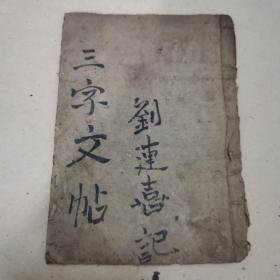 三字文帖
劉連喜記